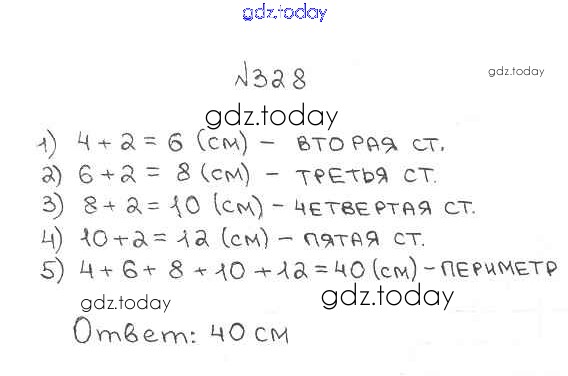 gdz.today
№328
gdz.today
gdz.today
1) 4 + 2 = 6 (см) - вторая ст.
2) 6 + 2 = 8 (см) - третья ст.
3) 8 + 2 = 10 (см) - четвертая ст.
4) 10 + 2 = 12 (см) - пятая ст.
5) 4 + 6 + 8 + 10 + 12 = 40 (см) - периметр
gdz.today
gdz.today
Ответ: 40 см